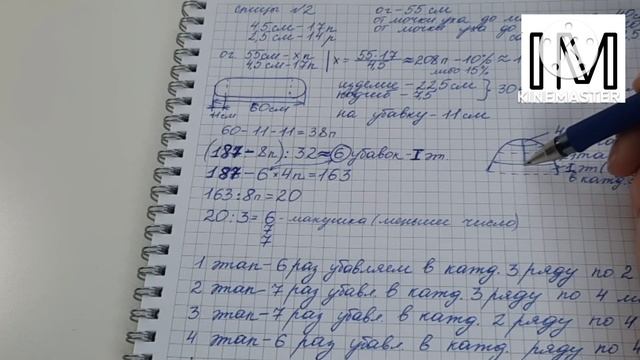 спицы №2
4,5см-17п
2,5см-14р
ог-55см
от мочки уха до
от мочки уха до
ог 55см-хп
4,5см-17п
x = 55·17
4,5
≈208п-10%≈
либо 15%
изделие-22,5см
подгиб-7,5
30
на убавку-11см
11см
60см
60-11-11=38п
(187-8п):32≈6 убавок-I эт.
187-6×4п=163
163:8п=20
20:3=6-макушка (меньшее число)
7
7
1 этап-6 раз убавляем в кажд. 3 ряду по 2
2 этап-7 раз убавл. в кажд. 3 ряду по 4
3 этап-7 раз убавл в кажд. 2 ряду по 4
4 этап-6 раз убавл в кажд. ряду по
I эт
в кажд.
KM
KINEMASTER